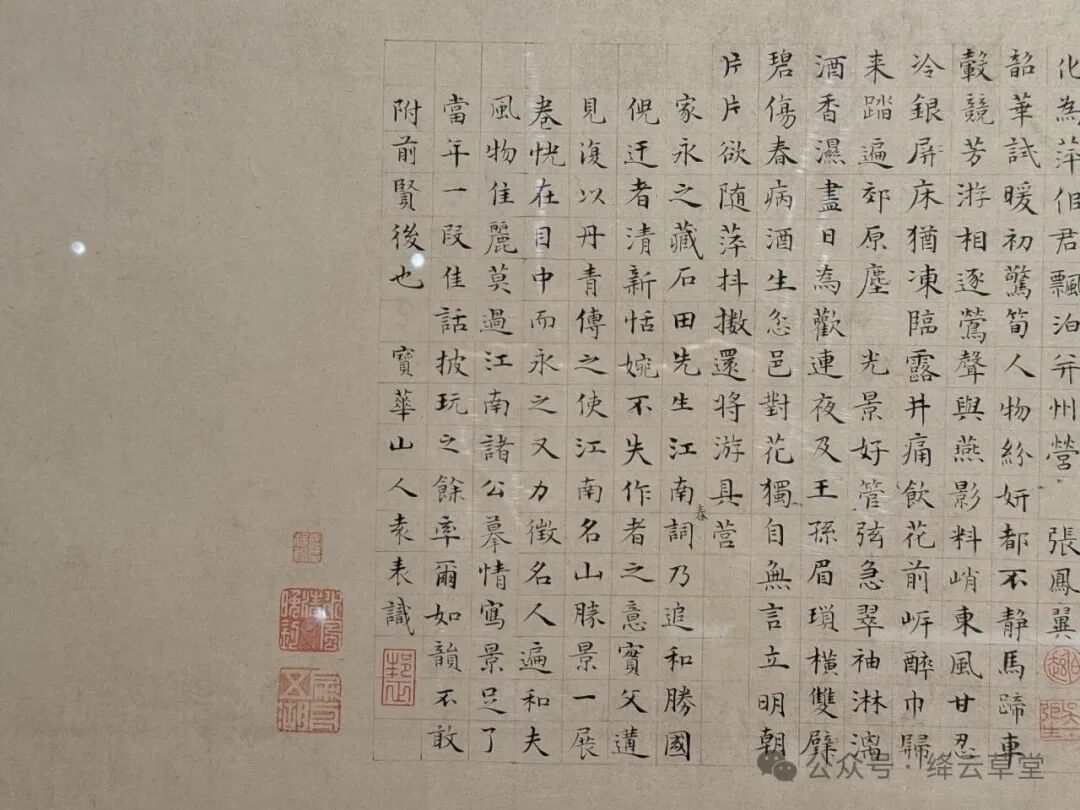 化為萍但君飄泊并州營　張鳳翼
韶華試暖初驚筍人物紛妍都不靜馬蹄車
轂競芳游相逐鶯聲與燕影料峭東風甘忍
冷銀屏床猶凍臨露井痛飲花前岸醉巾歸
来踏遍郊原塵　光景好管弦急翠袖淋漓
酒香濕盡日為歡連夜及王孫眉瑣橫雙
碧傷春病酒生忩邑對花獨自無言立明朝
片片欲随萍抖擻還將游具營
家永之藏石田先生江南春詞乃追和勝國
倪迂者清新恬婉不失作者之意實父遘
見復以丹青傳之使江南名山勝景一展
卷恍在目中而永之又力徵名人遍和夫
風物佳麗莫過江南諸公摹情寫景足了
當年一段佳話披玩之餘率爾如韻不敢
附前賢後也　寶華山人袁表識
公众号·绛云草堂